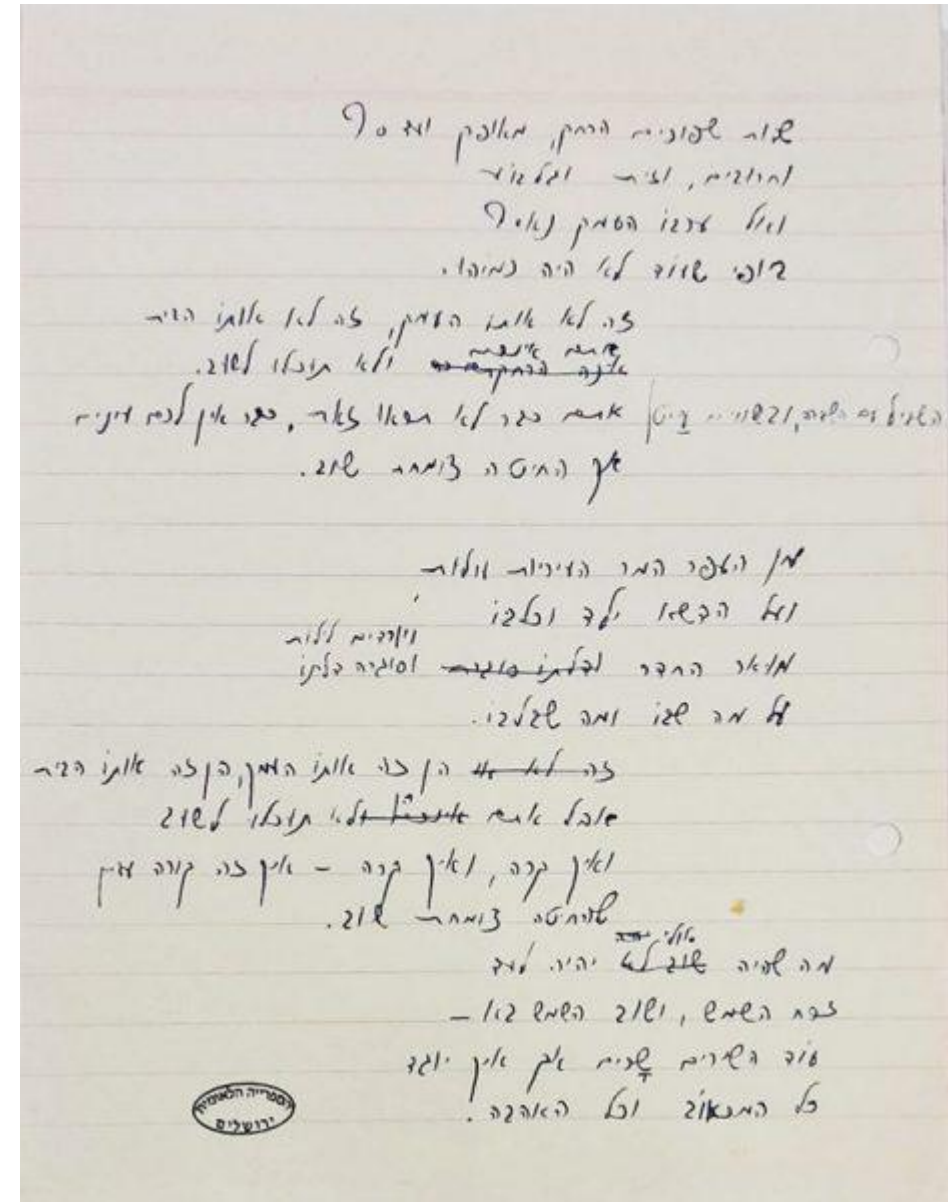 שדות שפוכים הרחק, מאופק ועד סף
וחרובים, וזית וגלבוע
ואל ערבו העמק נאסף
ביופי שעוד לא היה כמוהו.
זה לא אותו העמק, זה לא אותו הבית
אתם אינכם
ולא תוכלו לשוב.
השביל עם השדרה, ובשמיים עיט
אתם כבר לא תראו זאת, כבר אין לכם עינים
אך החיטה צומחת שוב.
מן העפר המר העיריות עולות
ועל הדשא ילד וכלבו
ויורדים לילות
מואר החדר ובדלתו סוגרת וסוגרה דלתו
על מה שבו ומה שבלבו.
זה לא הן זה אותו העמק, הן זה אותו הבית
אבל אתם אינכם ולא תוכלו לשוב
ואיך קרה, ואיך קרה – איך זה קורה עדיין
שהחיטה צומחת שוב.
אולי
מה שהיה שוב לא יהיה לעד
זרח השמש, ושוב השמש בא –
עוד השירים שרים אך איך יוגד
כל המכאוב וכל האהבה.
הספרייה הלאומית
ירושלים